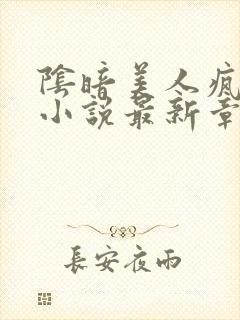 陰暗美人瘋
小說最新章
長安夜雨